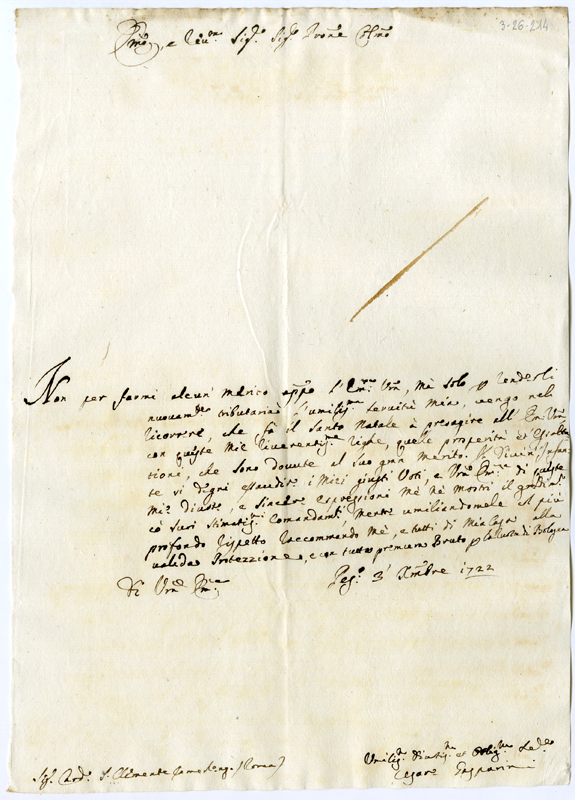 3-26-214
Em̃o, e Rev.mo Sig.r Sig.r Prone Col.mo
Non per farmi alcun' merito app̃o l'Em.za Vrã, mà solo p renderli
nuovam.te tributaria l'umiliss.ma servitù mia, vengo nel
ricorrere, che fà il Santo Natale à presagire all' Em. Vrã
con queste mie riverentiss.me righe, quelle prosperità et Esalta
tioni, che sono dovute al suo gran merito. Il Divin' Infan
te si degni essaudire i miei giusti Voti, e Vrã Em.za di queste
mie divote, e sincere espressioni mè ne mostri il gradim.to
cò suoi stimatiss.i Comandam.ti, mentre umiliandomele al più
profondo rispetto raccommando mè, e tutti di Mia Casa alla
valida Protezzione, e con tutta premura
Di Vrã Em.za
3 Xmbre 1722
Sig. Card. S. Clemente
Umiliss.mo Divotiss.mo et Obblig.mo
Cesare Gasparini